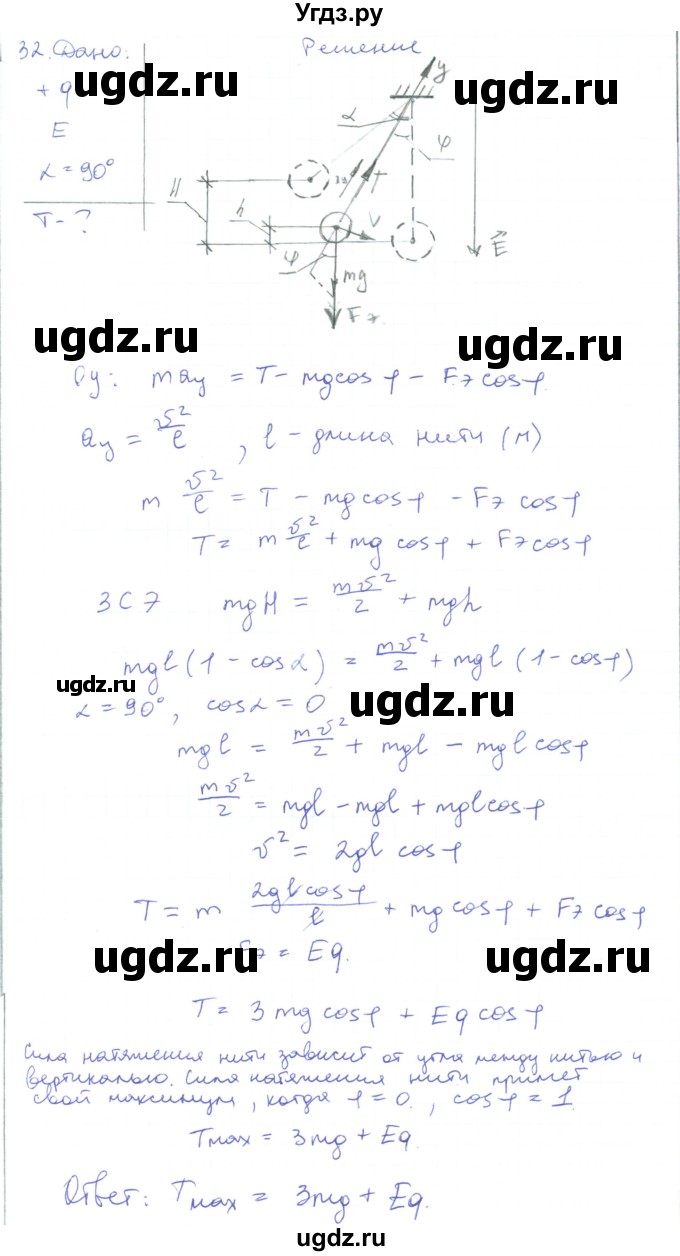 Угдз.ру
32. Дано: Решение
+ q
E
α = 90°
T - ?
y
α
φ
H
h
T
V
E
φ
mg
Fэ
ugdz.ru
ugdz.ru
ugdz.ru
ugdz.ru
Oy: may = T - mgcosφ - Fэcosφ
ay = v²/l, l - длина нити (м)
m v²/l = T - mgcosφ - Fэ cosφ
T = m v²/l + mg cosφ + Fэcosφ
ЗСЭ mgH = mv²/2 + mgh
mgl(1 - cosα) = mv²/2 + mgl(1 - cosφ)
ugdz.ru
ugdz.ru
α = 90°, cosα = 0
mgl = mv²/2 + mgl - mgl cosφ
mv²/2 = mgl - mgl + mglcosφ
v² = 2gl cosφ
T = m 2glcosφ/l + mgcosφ + Fэcosφ
Fэ = Eq.
ugdz.ru
ugdz.ru
T = 3mgcosφ + Eqcosφ
Сила натяжения нити зависит от угла между нитью и
вертикалью. Сила натяжения нити примет
свой максимум, когда φ = 0., cosφ = 1
Tmax = 3mg + Eq.
Ответ: Tmax = 3mg + Eq.
ugdz.ru